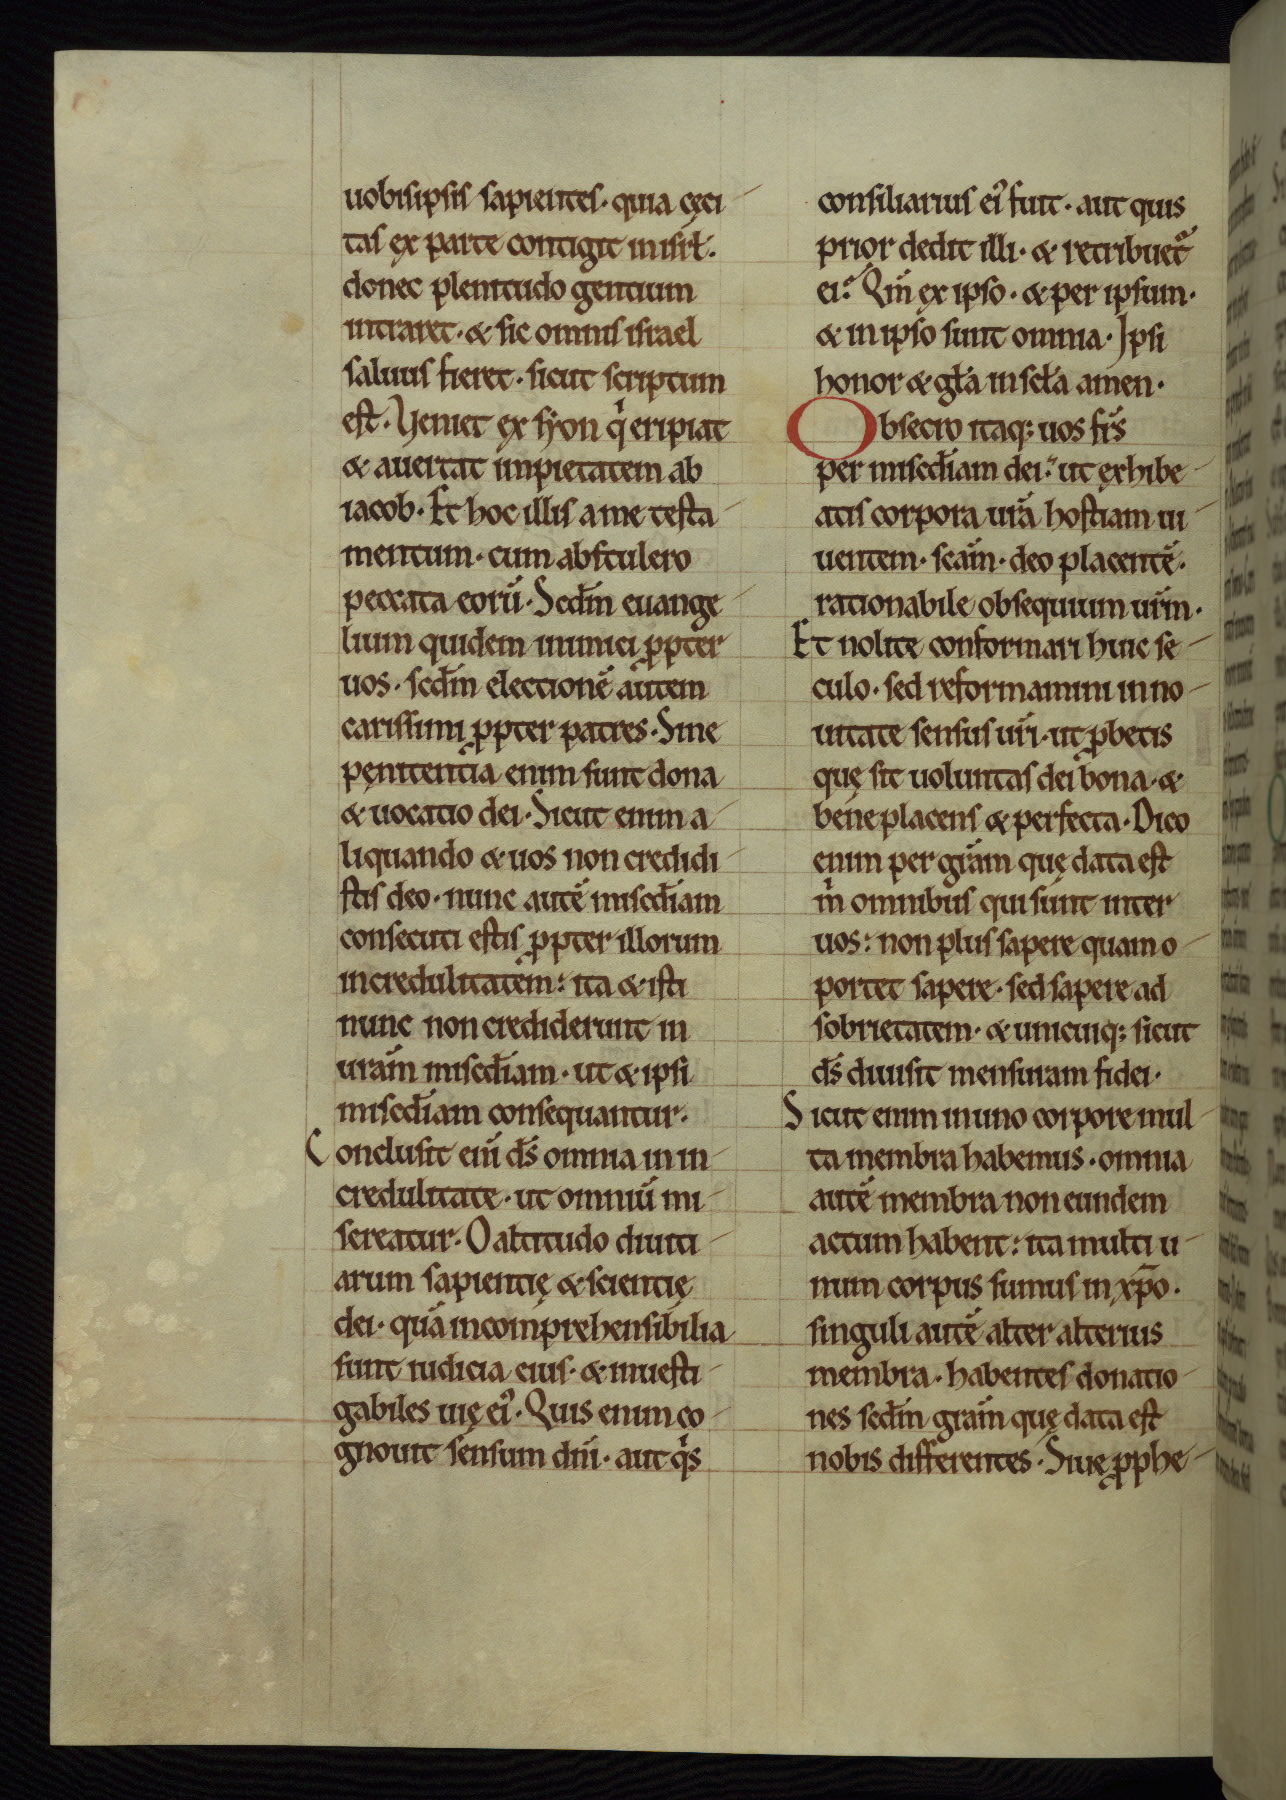 uobisipsis sapientes· quia cęci
tas ex parte contigit in isrł·
donec plenitudo gentium
intraret· & sic omnis israel
saluus fieret· sicut scriptum
est· Veniet ex syon qͥ eripiat
& auertat impietatem ab
iacob· Et hoc illis a me testa
mentum· cum abstulero
peccata eorū· Scdm̄ euange
lium quidem inimici ꝓpter
uos· scdm̄ electionē autem
carissimi ꝓpter patres· Sine
penitentia enim sunt dona
& uocatio dei· Sicut enim a
liquando & uos non credidi
stis deo· nunc autē miscd̄iam
consecuti estis ꝓpter illorum
incredulitatem: ita & isti
nunc non crediderunt in
uram̄ miscd̄iam· ut & ipsi
miscd̄iam consequantur·
Conclusit eni᷒ ds̄ omnia in in
credulitate· ut omniū mi
sereatur· O altitudo diuiti
arum sapientię & scientię
dei· quā incomprehensibilia
sunt iudicia eius· & inuesti
gabiles uię ei᷒· Quis enim co
gnouit sensum dn̄i· aut qͥs
consiliarius ei᷒ fuit· aut quis
prior dedit illi· & retribuet᷑
ei? Qm̄ ex ipso· & per ipsum·
& in ipso sunt omnia· Ipsi
honor & gła in scła amen·
Obsecro itaq; uos frs̄
per miscd̄iam dei: ut exhibe
atis corpora ur̄a hostiam ui
uentem· scam̄· deo placentē·
rationabile obsequium urm̄·
Et nolite conformari huic se
culo· sed reformamini in no
uitate sensus ur̄i· ut ꝓbetis
quę sit uoluntas dei bona· &
bene placens & perfecta· Dico
enim per gram̄ quę data est
m̍ omnibus qui sunt inter
uos: non plus sapere quam o
portet sapere· sed sapere ad
sobrietatem· & unicuiq; sicut
ds̄ diuisit mensuram fidei·
Sicut enim in uno corpore mul
ta membra habemus· omnia
autē membra non eundem
actum habent: ita multi u
num corpus sumus in xp̄o·
singuli autē alter alterius
membra· habentes donatio
nes scdm̄ gram̄ quę data est
nobis differentes· Siue ꝓphe